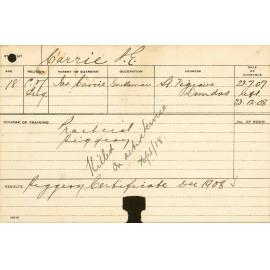 Carrie P. E.
AGE RELIGION PARENT OR GUARDIAN OCCUPATION ADDRESS DATE OF ENTRANCE
18 C of Eng. Jas. Carrie Gentleman Dundas 22.7.07
Sept.
22.12.08
COURSE OF TRAINING NO. OF ROOM
Practical
Piggery
Killed
on active service
RESULTS Piggery Certificate Dec 1908